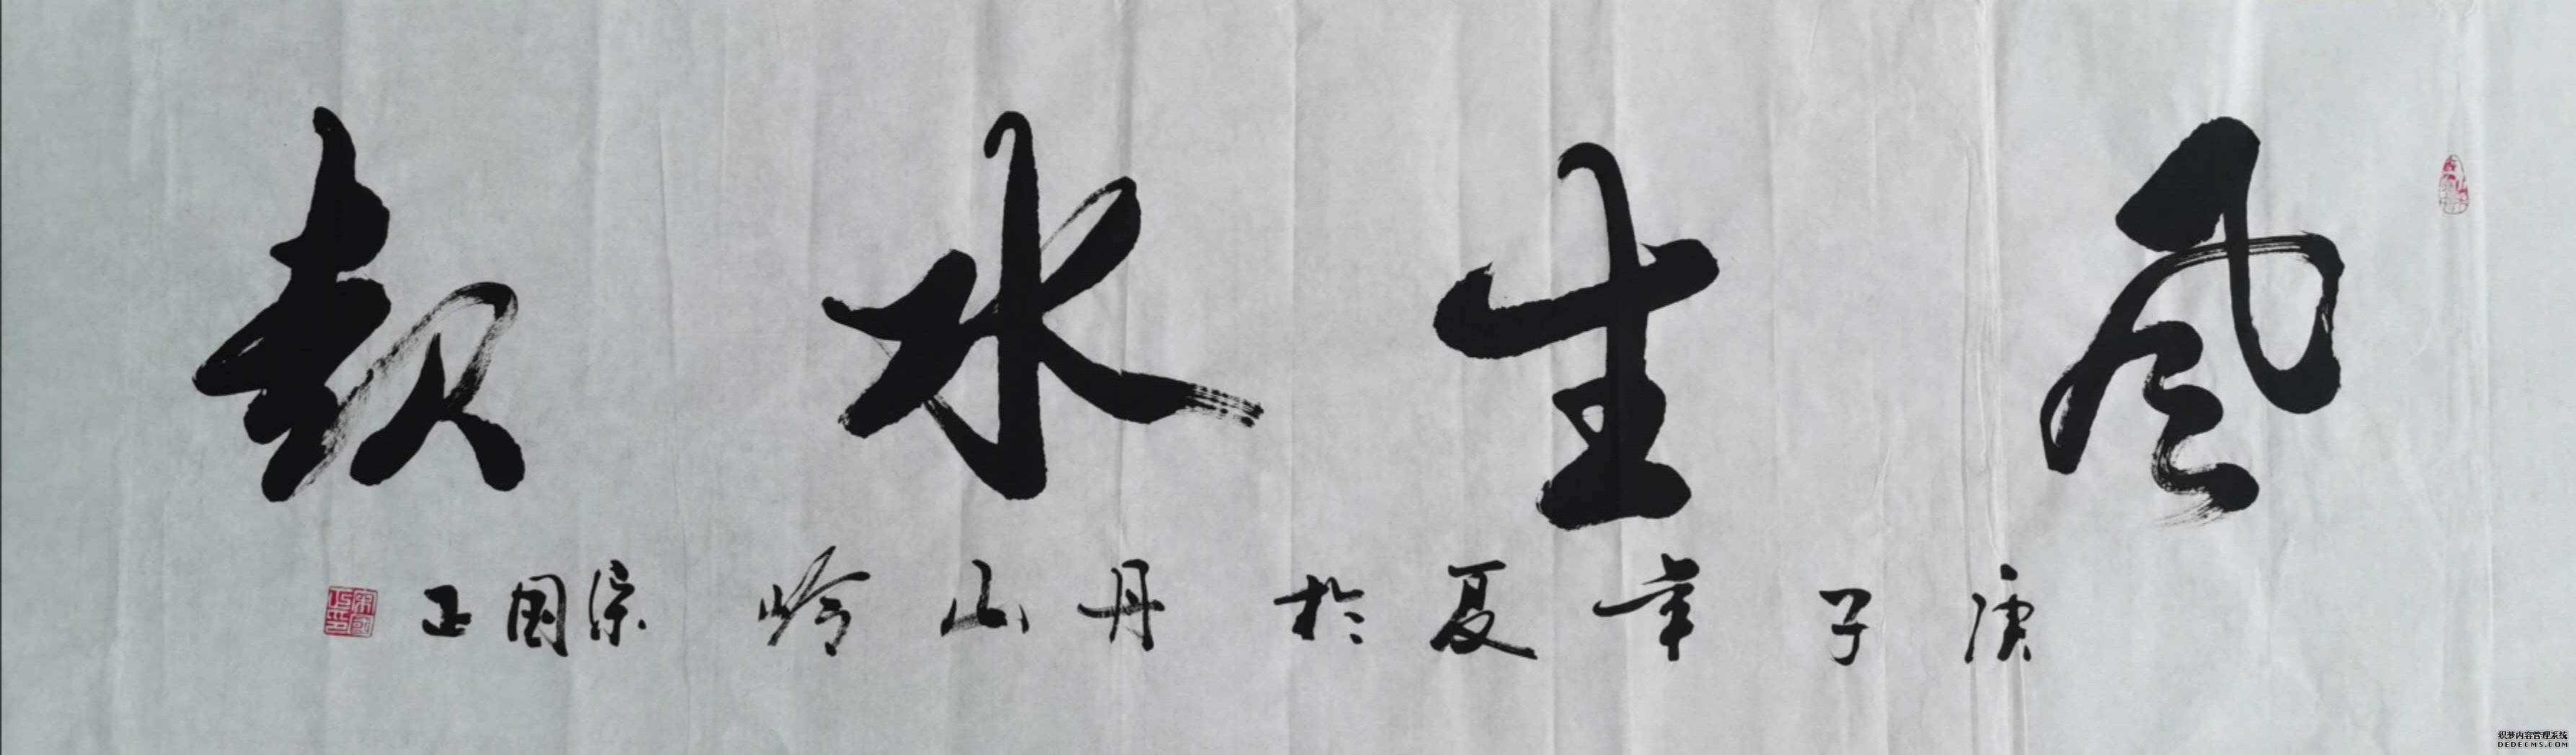 风生水起
庚子年夏於丹山岭宗国正
织梦内容管理系统
DEDECMS.COM